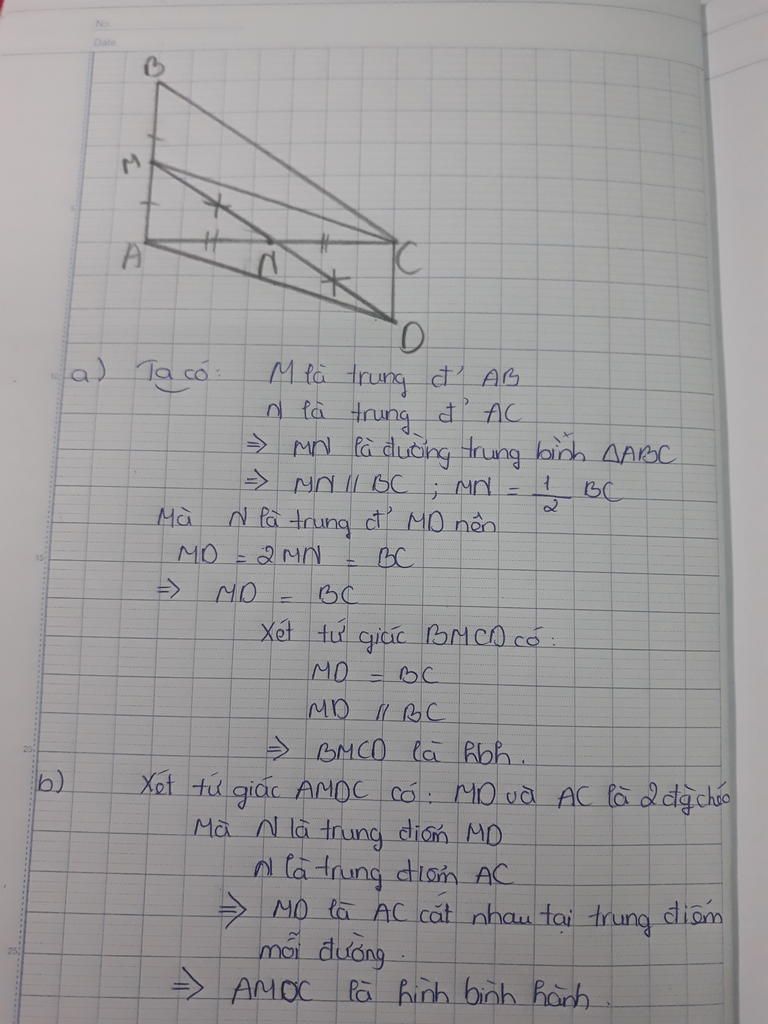 No.
Date
B
M
A
N
C
D
a) Ta có: M là trung đ' AB
N là trung đ' AC
=> MN là đường trung bình ΔABC
=> MN // BC ; MN = 1/2 BC
Mà N là trung đ' MD nên
MD = 2MN = BC
=> MD = BC
Xét tứ giác BMCD có:
MD = BC
MD // BC
=> BMCD là hbh.
b) Xét tứ giác AMDC có: MD và AC là 2 đg chéo
Mà N là trung điểm MD
N là trung điểm AC
=> MD là AC cắt nhau tại trung điểm
mỗi đường.
=> AMDC là hình bình hành.